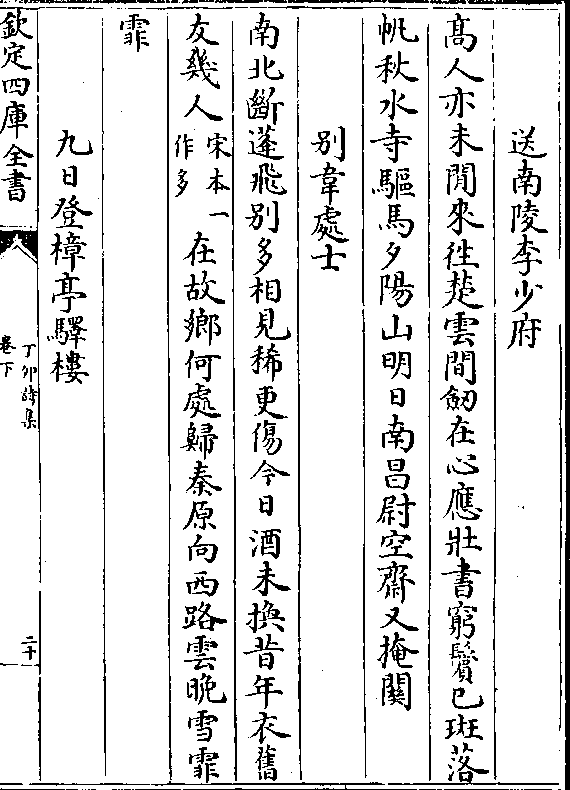 送南陵李少府
髙人亦未閒來徃楚雲間劒在心應壯書窮鬢已斑落
帆秋水寺驅馬夕陽山明日南昌尉空齋又掩闗
别韋處士
南北斷蓬飛别多相見稀更傷今日酒未換昔年衣舊
友幾人宋本一作多在故鄉何處歸秦原向西路雲晚雪霏
霏
九日登樟亭驛樓
欽定四庫全書
丁卯詩集
卷下
二十